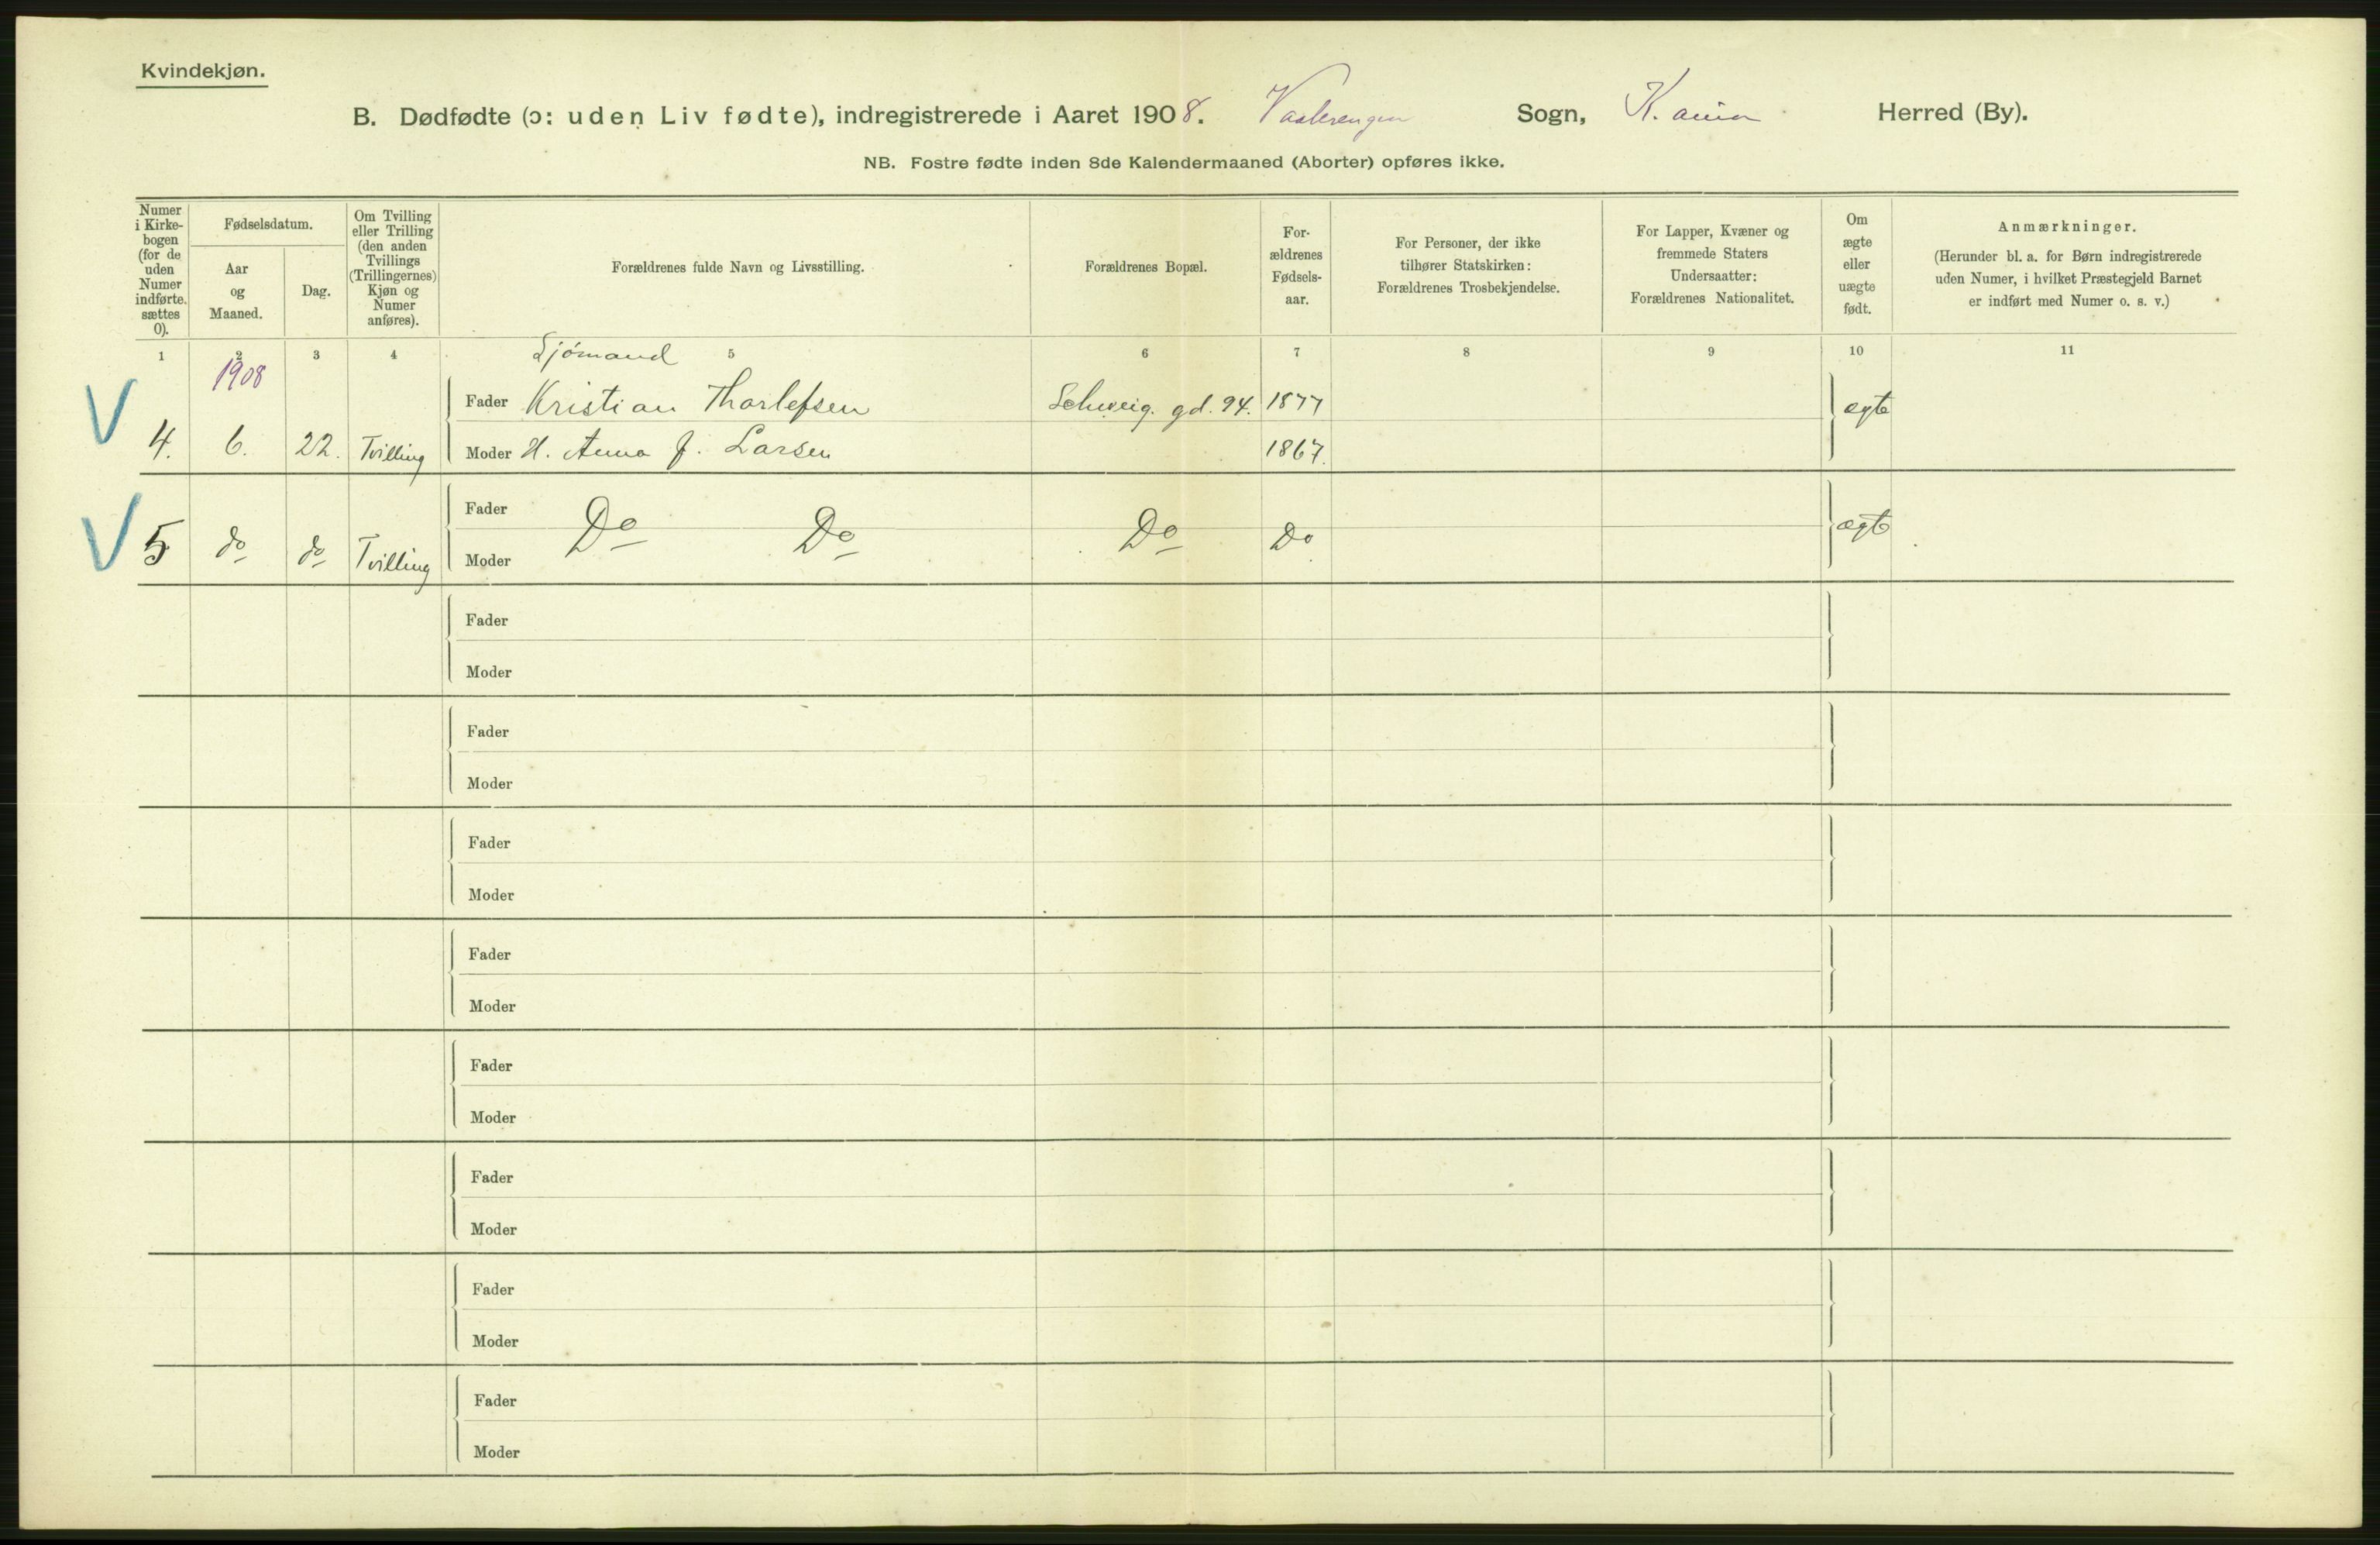 Kvindekjøn.
B. Dødfødte (ɔ: uden Liv fødte), indregistrerede i Aaret 1908. Vaalerengen Sogn, K.ania Herred (By).
NB. Fostre fødte inden 8de Kalendermaaned (Aborter) opføres ikke.
Numer i Kirke-bogen (for de uden Numer indførte. sættes 0).
Fødselsdatum.
Aar og Maaned.
Dag.
Om Tvilling eller Trilling (den anden Tvillings (Trillingernes) Kjøn og Numer anføres).
Forældrenes fulde Navn og Livsstilling.
Forældrenes Bopæl.
For-ældrenes Fødsels-aar.
For Personer, der ikke tilhører Statskirken: Forældrenes Trosbekjendelse.
For Lapper, Kvæner og fremmede Staters Undersaatter: Forældrenes Nationalitet.
Om ægte eller uægte født.
Anmærkninger.
(Herunder bl. a. for Børn indregistrerede uden Numer, i hvilket Præstegjeld Barnet er indført med Numer o. s. v.)
1 2 3 4 5 6 7 8 9 10 11
1908 Sjømand
V Fader Kristian Thorlefsen Schweig. gd. 94. 1877 ægte
4. 6. 22. Tvilling Moder H. Anna J. Larsen 1867.
V Fader Do Do Do Do ægte
5 do do Tvilling Moder
Fader
Moder
Fader
Moder
Fader
Moder
Fader
Moder
Fader
Moder
Fader
Moder
Fader
Moder
Fader
Moder